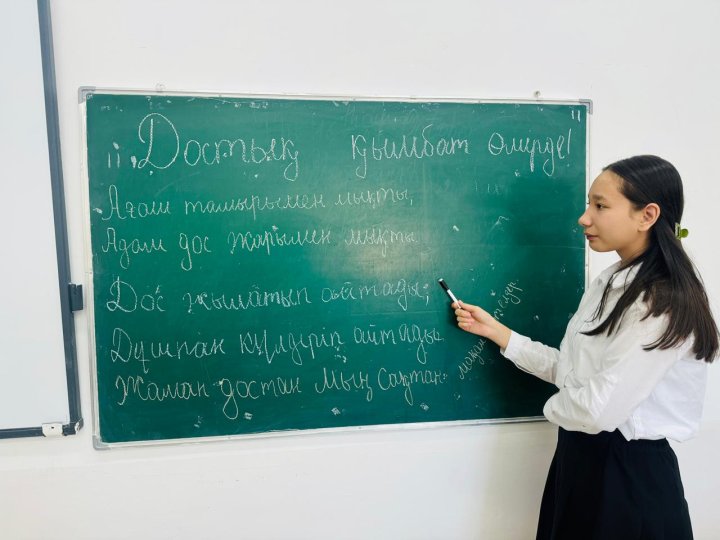 "Достық қымбат өмірде!"
Ағаш тамырымен мықты,
Адам дос жарымен мықты.
Дос жылатып айтады;
Дұшпан күлдіріп айтады.
Жаман достан Мың Сақтан.
мақал